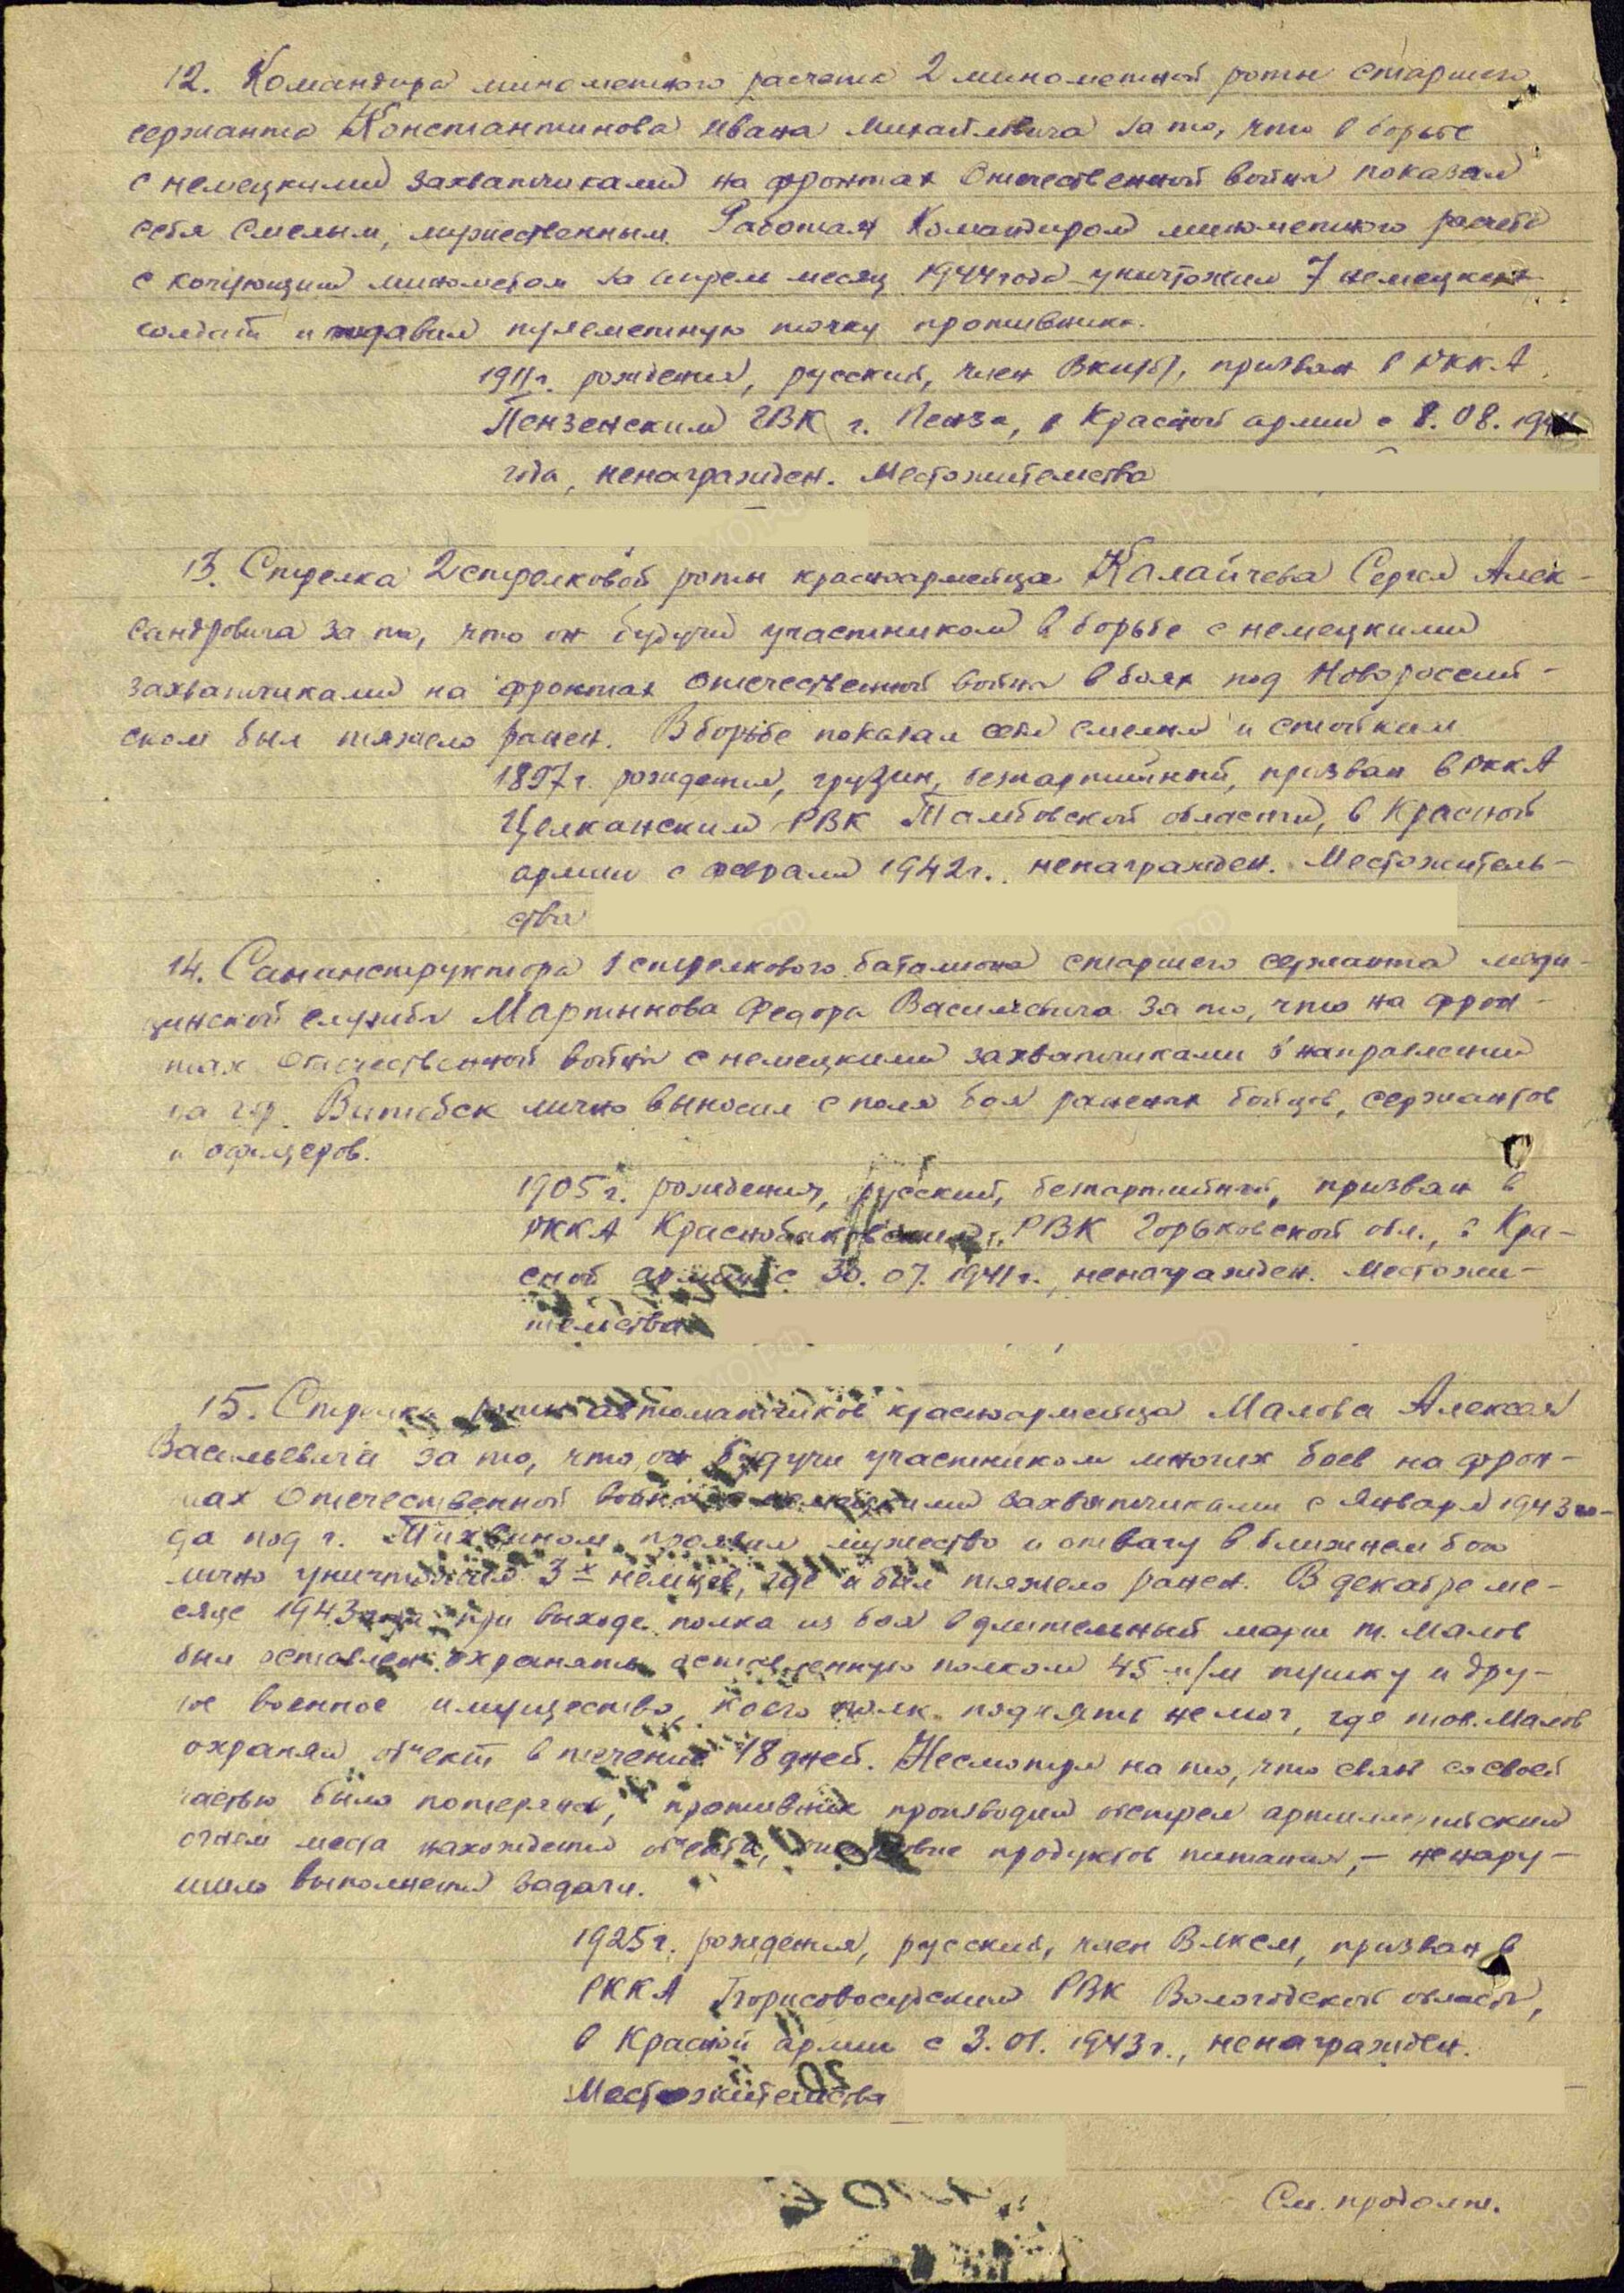 12. Командира минометного расчета 2 минометной роты старшего
сержанта Константинова Ивана Михайловича за то, что в борьбе
с немецкими захватчиками на фронтах Отечественной войны показал
себя смелым, мужественным. Работая Командиром минометного расчета
с кочующим минометом за апрель месяц 1944 года уничтожил 7 немецких
солдат и подавил пулеметную точку противника.
1911 г. рождения, русский, член ВКП(б), призван в РККА
Пензенским ГВК г. Пенза, в Красной армии с 8.08.
года, ненагражден. Местожительство
13. Стрелка 2 стрелковой роты красноармейца Калайчева Сергея Алек-
сандровича за то, что он будучи участником в борьбе с немецкими
захватчиками на фронтах Отечественной войны в боях под Новороссий-
ском был тяжело ранен. В борьбе показал себя смелым и стойким
1897 г. рождения, грузин, безпартийный, призван в РККА
РВК области, в Красной
армии с февраля 1942 г., ненагражден. Местожитель-
ство
14. Санинструктора 1 стрелкового баталиона старшего сержанта меди-
цинской службы Мартынова Федора Васильевича за то, что на фрон-
тах Отечественной войны с немецкими захватчиками в направлении
на гор. Витебск лично выносил с поля боя раненых бойцов, сержантов
и офицеров.
1905 г. рождения, русский, безпартийный, призван в
РККА Краснобаковским РВК Горьковской обл., в Кра-
сной армии с 30.07.1941 г., ненагражден. Местожи-
тельство
15. Стрелка роты автоматчиков красноармейца Малова Алексея
Васильевича за то, что он будучи участником многих боев на фрон-
тах Отечественной войны с немецкими захватчиками с января 1943 го-
да под г. Тихвином проявил мужество и отвагу в ближнем бою
лично уничтожил 3-х немцев, где и был тяжело ранен. В декабре ме-
сяце 1943 года при выходе полка из боя в длительный марш т. Малов
был оставлен охранять оставленную полком 45 м/м пушку и дру-
гое военное имущество, коего полк поднять не мог, где тов. Малов
охранял объект в течение 18 дней. Несмотря на то, что связь со своей
частью была потеряна, противник производил обстрел артиллерийским
огнем места нахождения объекта, продуктов питания, – ненару-
шило выполнения задачи.
1925 г. рождения, русский, член ВЛКСМ, призван в
РККА Борисовосудским РВК Вологодской области,
в Красной армии с 3.01.1943 г., ненагражден.
Местожительство
См. продолж.